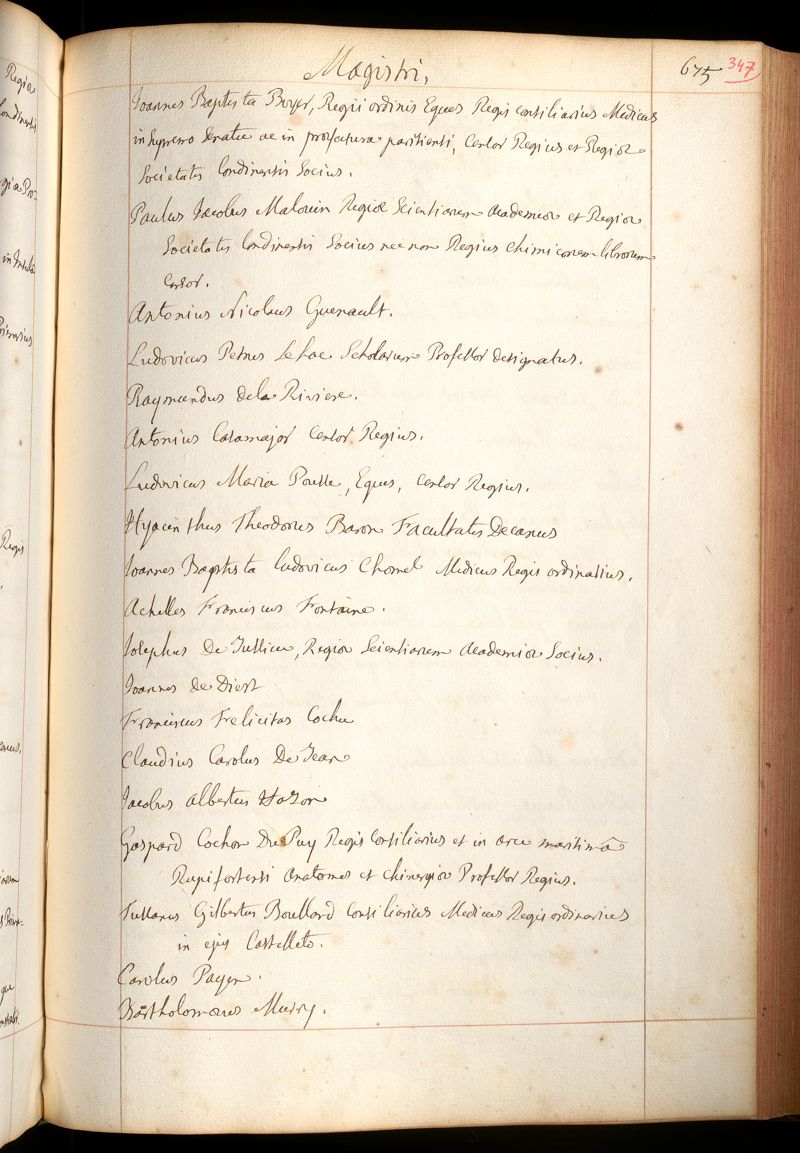 Magistri,
675 347
Joannes Baptista Boyer, Regii ordinis Eques Regis consiliarius Medicus
in supremo senatu ac in præfectura parisiensi, Censor Regius et Regiæ
Societatis Londinensis Socius.
Paulus Jacobus Malouin Regiæ Scientiarum Academiæ et Regiæ
Societatis Londinensis Socius nec non Regius chimicorum librorum
Censor.
Antonius Nicolaus Guenault.
Ludovicus Petrus Lehoc Scholarum Professor designatus.
Raymundus de la Riviere.
Antonius Casamajor Censor Regius.
Ludovicus Maria Pousse, Eques, Censor Regius.
Hyacinthus Theodorus Baron Facultatis Decanus
Joannes Baptista Ludovicus Chomel Medicus Regis ordinarius.
Achilles Franciscus Fontaine.
Josephus De Jussieu, Regiæ Scientiarum Academiæ Socius.
Joannes de Diest
Franciscus Felicitas Cochu
Claudius Carolus De Jean
Jacobus Albertus Hazon
Gaspard Cochon Du Puy Regis Consiliarius et in arce maritimâ
Rupifortensi anatomes et chirurgiæ Professor Regius.
Tussanus Gilbertus Boullard Consiliarius Medicus Regis ordinarius
in ejus Castelleto.
Carolus Payen.
Bartholomæus Murry.
Regia
Londinensis
Regis